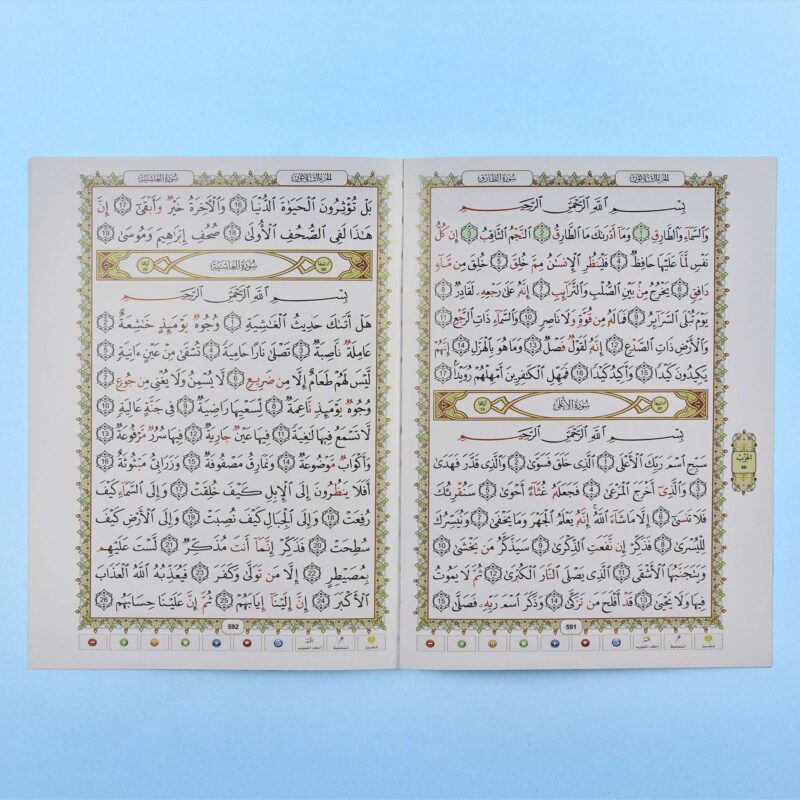 الجزء الثلاثون سورة الطارق
بِسْمِ ٱللَّهِ ٱلرَّحْمَٰنِ ٱلرَّحِيمِ
وَٱلسَّمَآءِ وَٱلطَّارِقِ ۝1 وَمَآ أَدْرَىٰكَ مَا ٱلطَّارِقُ ۝2 ٱلنَّجْمُ ٱلثَّاقِبُ ۝3 إِن كُلُّ
نَفْسٍ لَّمَّا عَلَيْهَا حَافِظٌ ۝4 فَلْيَنظُرِ ٱلْإِنسَٰنُ مِمَّ خُلِقَ ۝5 خُلِقَ مِن مَّآءٍ
دَافِقٍ ۝6 يَخْرُجُ مِنۢ بَيْنِ ٱلصُّلْبِ وَٱلتَّرَآئِبِ ۝7 إِنَّهُۥ عَلَىٰ رَجْعِهِۦ لَقَادِرٌ ۝8
يَوْمَ تُبْلَى ٱلسَّرَآئِرُ ۝9 فَمَا لَهُۥ مِن قُوَّةٍ وَلَا نَاصِرٍ ۝10 وَٱلسَّمَآءِ ذَاتِ ٱلرَّجْعِ ۝11
وَٱلْأَرْضِ ذَاتِ ٱلصَّدْعِ ۝12 إِنَّهُۥ لَقَوْلٌ فَصْلٌ ۝13 وَمَا هُوَ بِٱلْهَزْلِ ۝14 إِنَّهُمْ
يَكِيدُونَ كَيْدًا ۝15 وَأَكِيدُ كَيْدًا ۝16 فَمَهِّلِ ٱلْكَٰفِرِينَ أَمْهِلْهُمْ رُوَيْدًۢا ۝17
ترتيبها 87 سُورَةُ الأَعْلَى آياتها 19
بِسْمِ ٱللَّهِ ٱلرَّحْمَٰنِ ٱلرَّحِيمِ
سَبِّحِ ٱسْمَ رَبِّكَ ٱلْأَعْلَى ۝1 ٱلَّذِى خَلَقَ فَسَوَّىٰ ۝2 وَٱلَّذِى قَدَّرَ فَهَدَىٰ
۝3 وَٱلَّذِىٓ أَخْرَجَ ٱلْمَرْعَىٰ ۝4 فَجَعَلَهُۥ غُثَآءً أَحْوَىٰ ۝5 سَنُقْرِئُكَ
فَلَا تَنسَىٰٓ ۝6 إِلَّا مَا شَآءَ ٱللَّهُ إِنَّهُۥ يَعْلَمُ ٱلْجَهْرَ وَمَا يَخْفَىٰ ۝7 وَنُيَسِّرُكَ
لِلْيُسْرَىٰ ۝8 فَذَكِّرْ إِن نَّفَعَتِ ٱلذِّكْرَىٰ ۝9 سَيَذَّكَّرُ مَن يَخْشَىٰ ۝10
وَيَتَجَنَّبُهَا ٱلْأَشْقَى ۝11 ٱلَّذِى يَصْلَى ٱلنَّارَ ٱلْكُبْرَىٰ ۝12 ثُمَّ لَا يَمُوتُ
فِيهَا وَلَا يَحْيَىٰ ۝13 قَدْ أَفْلَحَ مَن تَزَكَّىٰ ۝14 وَذَكَرَ ٱسْمَ رَبِّهِۦ فَصَلَّىٰ ۝15
الحزب
60
591
الجزء الثلاثون سورة الغاشية
بَلْ تُؤْثِرُونَ ٱلْحَيَوٰةَ ٱلدُّنْيَا ۝16 وَٱلْأَخِرَةُ خَيْرٌ وَأَبْقَىٰٓ ۝17 إِنَّ
هَٰذَا لَفِى ٱلصُّحُفِ ٱلْأُولَىٰ ۝18 صُحُفِ إِبْرَٰهِيمَ وَمُوسَىٰ ۝19
ترتيبها 88 سُورَةُ الغَاشِيَةِ آياتها 26
بِسْمِ ٱللَّهِ ٱلرَّحْمَٰنِ ٱلرَّحِيمِ
هَلْ أَتَىٰكَ حَدِيثُ ٱلْغَٰشِيَةِ ۝1 وُجُوهٌ يَوْمَئِذٍ خَٰشِعَةٌ ۝2
عَامِلَةٌ نَّاصِبَةٌ ۝3 تَصْلَىٰ نَارًا حَامِيَةً ۝4 تُسْقَىٰ مِنْ عَيْنٍ ءَانِيَةٍ ۝5
لَّيْسَ لَهُمْ طَعَامٌ إِلَّا مِن ضَرِيعٍ ۝6 لَّا يُسْمِنُ وَلَا يُغْنِى مِن جُوعٍ ۝7
وُجُوهٌ يَوْمَئِذٍ نَّاعِمَةٌ ۝8 لِّسَعْيِهَا رَاضِيَةٌ ۝9 فِى جَنَّةٍ عَالِيَةٍ ۝10
لَّا تَسْمَعُ فِيهَا لَٰغِيَةً ۝11 فِيهَا عَيْنٌ جَارِيَةٌ ۝12 فِيهَا سُرُرٌ مَّرْفُوعَةٌ ۝13
وَأَكْوَابٌ مَّوْضُوعَةٌ ۝14 وَنَمَارِقُ مَصْفُوفَةٌ ۝15 وَزَرَابِىُّ مَبْثُوثَةٌ ۝16
أَفَلَا يَنظُرُونَ إِلَى ٱلْإِبِلِ كَيْفَ خُلِقَتْ ۝17 وَإِلَى ٱلسَّمَآءِ كَيْفَ
رُفِعَتْ ۝18 وَإِلَى ٱلْجِبَالِ كَيْفَ نُصِبَتْ ۝19 وَإِلَى ٱلْأَرْضِ كَيْفَ
سُطِحَتْ ۝20 فَذَكِّرْ إِنَّمَآ أَنتَ مُذَكِّرٌ ۝21 لَّسْتَ عَلَيْهِم
بِمُصَيْطِرٍ ۝22 إِلَّا مَن تَوَلَّىٰ وَكَفَرَ ۝23 فَيُعَذِّبُهُ ٱللَّهُ ٱلْعَذَابَ
ٱلْأَكْبَرَ ۝24 إِنَّ إِلَيْنَآ إِيَابَهُمْ ۝25 ثُمَّ إِنَّ عَلَيْنَا حِسَابَهُم ۝26
592